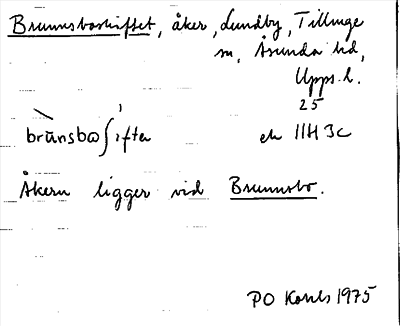 Brunnsboskiftet, åker, Lundby, Tillinge
sn, Åsunda hd,
Upps. l.
25
brùnsbω∫ıftən ek 11H 3c
Åkern ligger vid Brunnsbo.
PO 1975